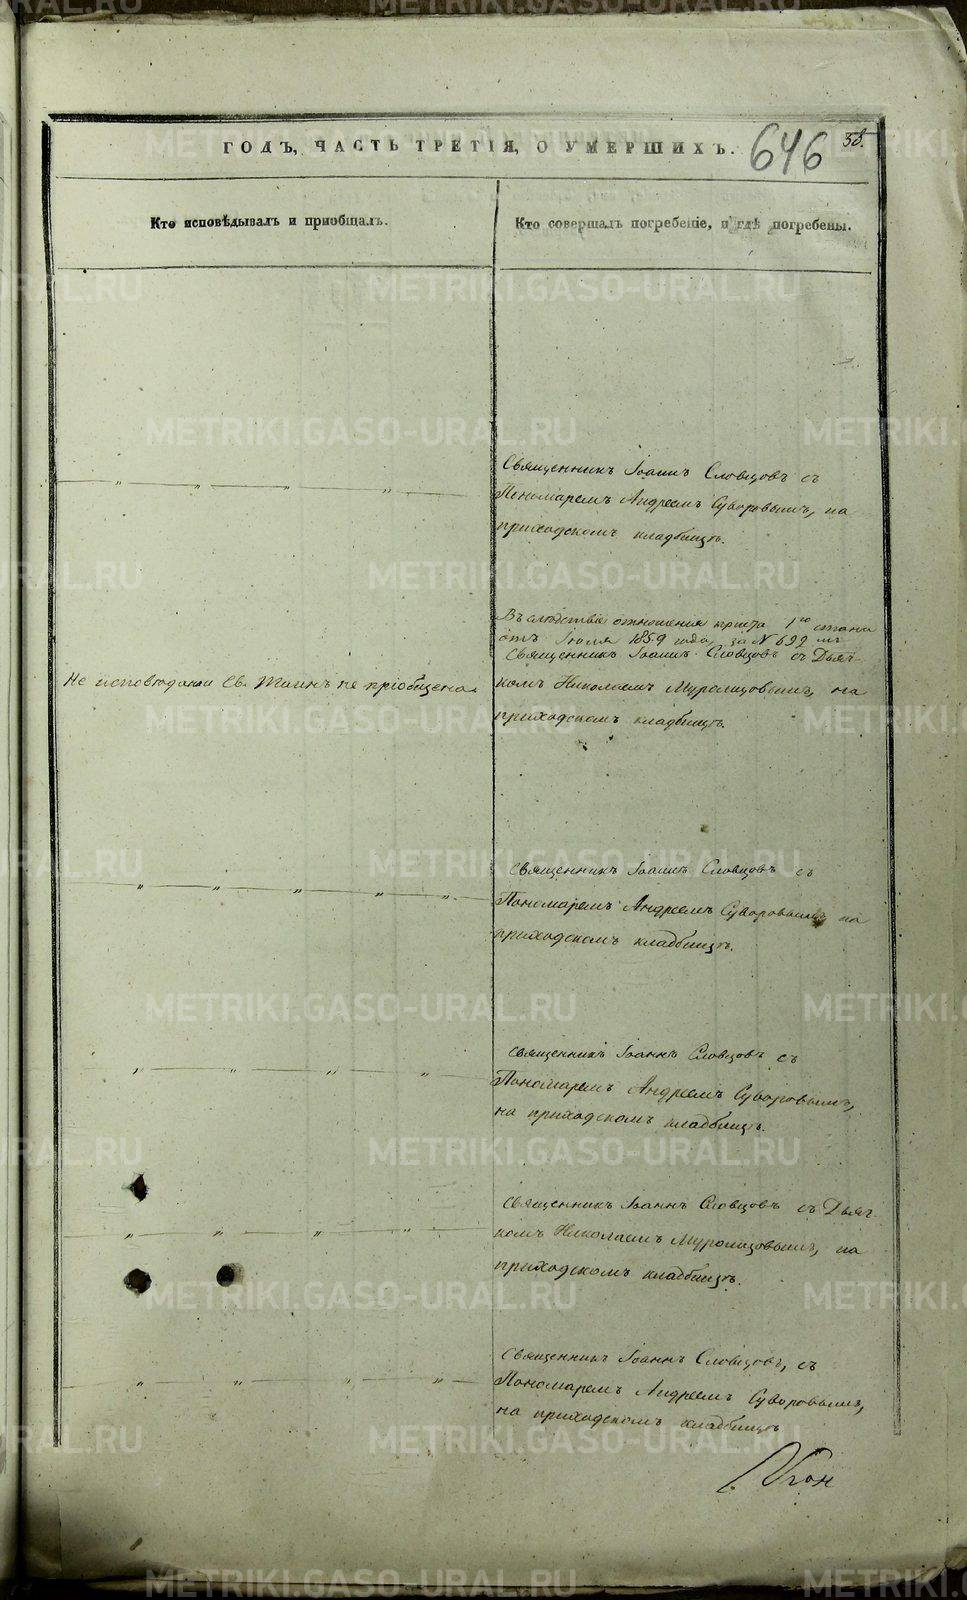 ГОДЪ, ЧАСТЬ ТРЕТІЯ, О УМЕРШИХЪ.
646
38.
Кто исповѣдывалъ и приобщалъ.
Кто совершалъ погребеніе, и гдѣ погребены.
Священникъ Іоаннъ Словцовъ съ
Пономаремъ Андреемъ Суворовымъ, на
приходскомъ кладбищѣ.
Въ слѣдствіе отношенія 1го стана
отъ Іюля 1859 года за № 692 мъ
Священникъ Іоаннъ Словцовъ съ Дьяч-
Не исповѣдана и Св. Таинъ не пріобщена.
комъ Николаемъ Муромцовымъ, на
приходскомъ кладбищѣ.
Священникъ Іоаннъ Словцовъ съ
Пономаремъ Андреемъ Суворовымъ на
приходскомъ кладбищѣ.
Священникъ Іоаннъ Словцовъ съ
Пономаремъ Андреемъ Суворовымъ,
на приходскомъ кладбищѣ.
Священникъ Іоаннъ Словцовъ съ Дьяч-
комъ Николаемъ Муромцовымъ, на
приходскомъ кладбищѣ.
Священникъ Іоаннъ Словцовъ, съ
Пономаремъ Андреемъ Суворовымъ,
на приходскомъ кладбищѣ
METRIKI.GASO-URAL.RU